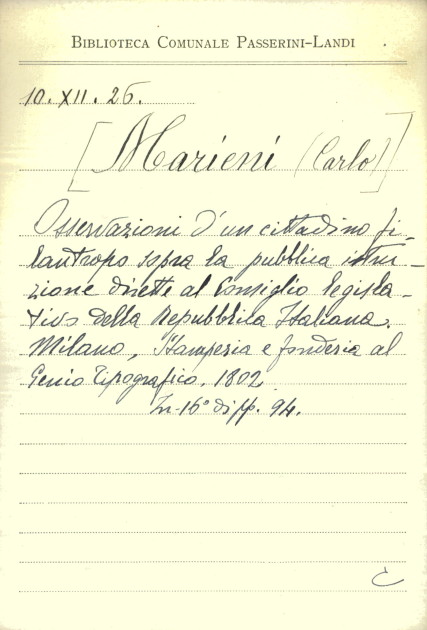 BIBLIOTECA COMUNALE PASSERINI-LANDI
10. XII. 26.
[Marieni (Carlo)]
Osservazioni d'un cittadino fi-
lantropo sopra la pubblica istru-
zione dirette al Consiglio legisla-
tivo della Repubblica Italiana.
Milano, Stamperia e fonderia al
Genio Tipografico. 1802
In-16° di pp. 94.
C